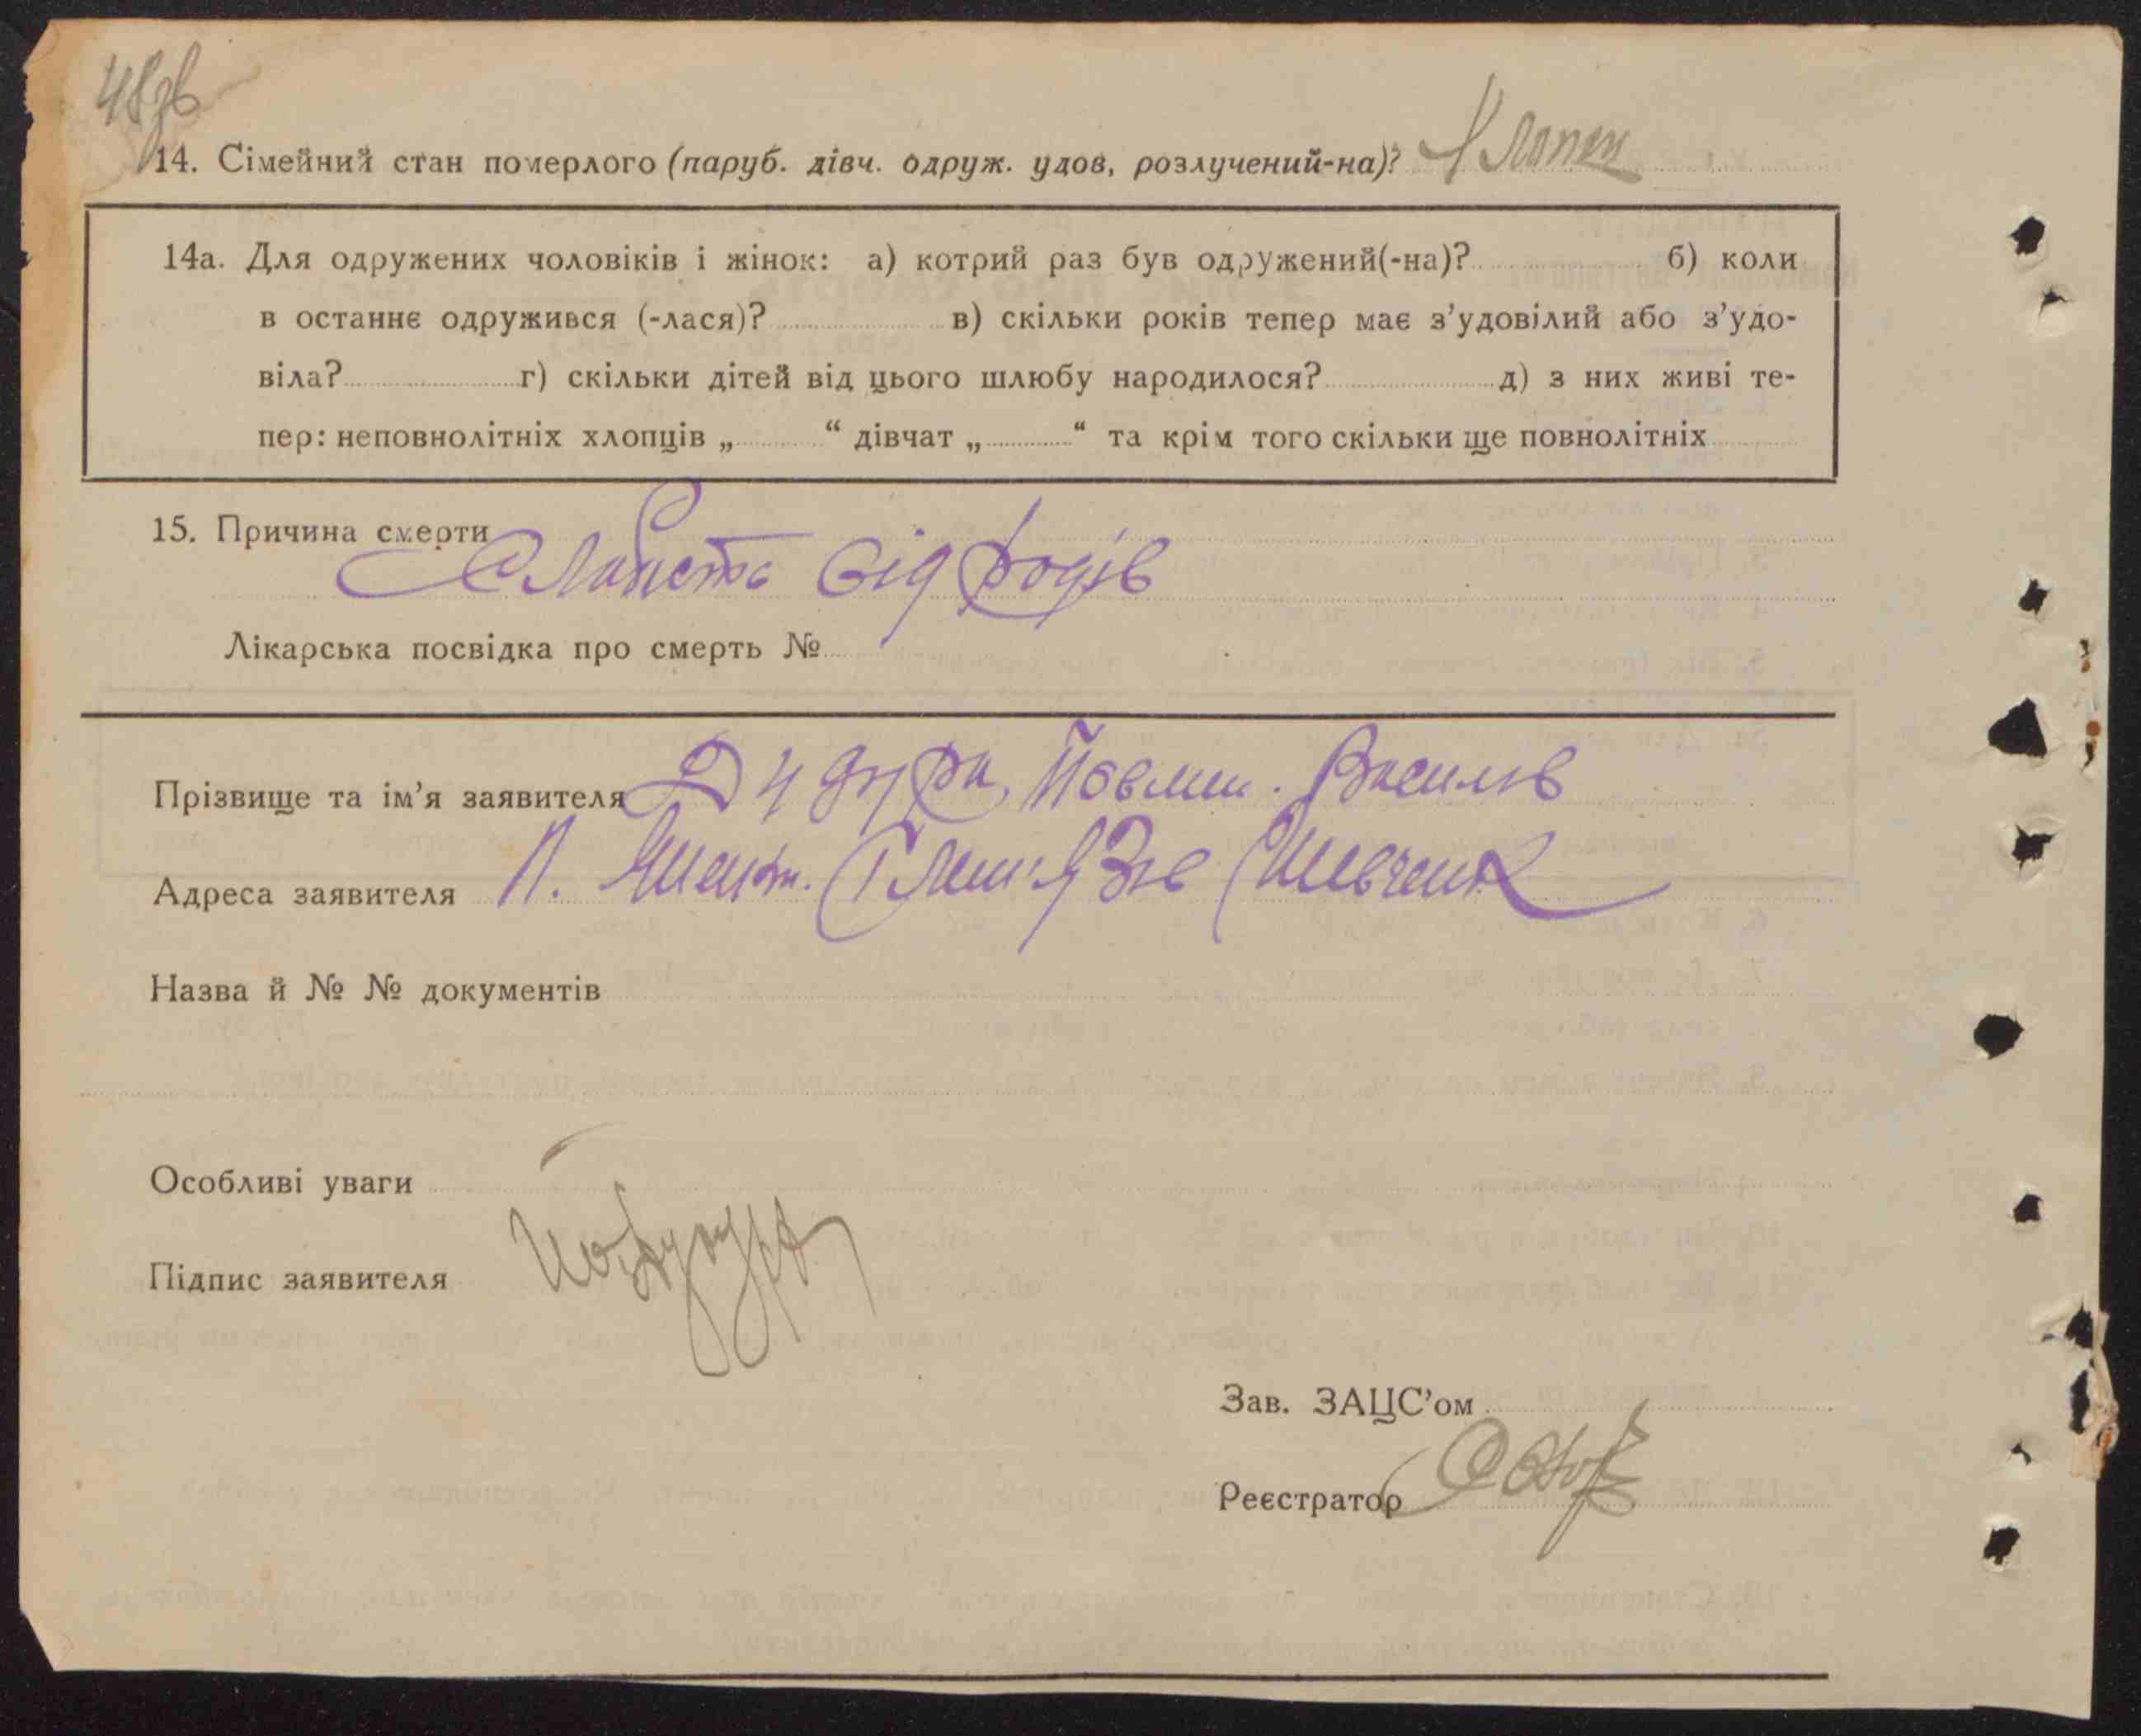 48зв
14. Сімейний стан померлого (паруб. дівч. одруж. удов, розлучений-на)? Хлопец
14а. Для одружених чоловіків і жінок: а) котрий раз був одружений(-на)? б) коли
в останнє одружився (-лася)? в) скільки років тепер має з’удовілий або з’удо-
віла? г) скільки дітей від цього шлюбу народилося? д) з них живі те-
пер: неповнолітніх хлопців „ “ дівчат „ “ та крім того скільки ще повнолітніх
15. Причина смерти
Слабість від родів
Лікарська посвідка про смерть №
Прізвище та ім’я заявителя Василів
Адреса заявителя
Назва й № № документів
Особливі уваги
Підпис заявителя
Зав. ЗАЦС’ом
Реєстратор